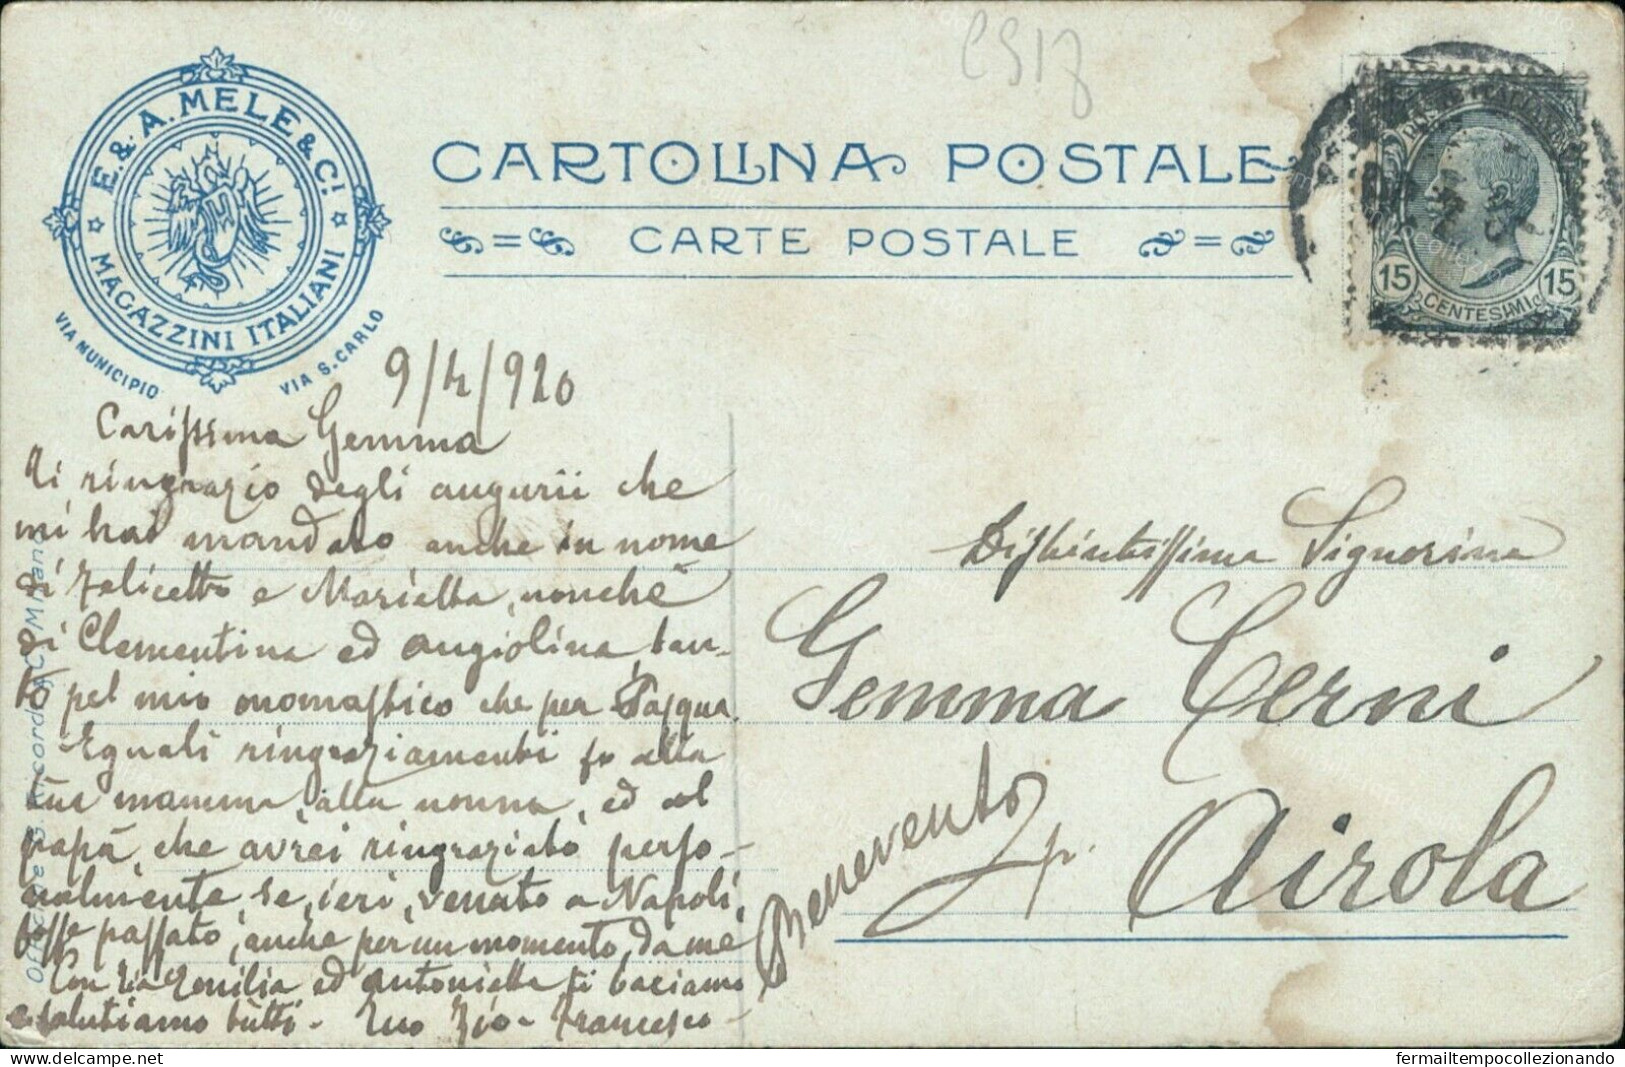 CS17
E. & A. MELE & Cⁱ.
MAGAZZINI ITALIANI
VIA MUNICIPIO
VIA S. CARLO
CARTOLINA POSTALE
CARTE POSTALE
POSTE ITALIANE
15 15
CENTESIMI
9/4/920
Carissima Gemma
Ti ringrazio degli augurii che
mi hai mandato anche in nome
di Felicetto e Marietta, nonchè
di Clementina ed Angiolina, tan-
to pel mio onomastico che per Pasqua.
Eguali ringraziamenti fo alla
tua mamma, alla nonna, ed al
papà, che avrei ringraziato perso-
nalmente, se, ieri, venuto a Napoli,
fosse passato, anche per un momento, da me
Con Zia Emilia ed Antonietta ti baciamo
e salutiamo tutti - Tuo Zio - Francesco -
Distintissima Signorina
Gemma Cerni
Benevento p. Airola
Officine G. Ricordi & C. Milano
fermailtempocollezionando